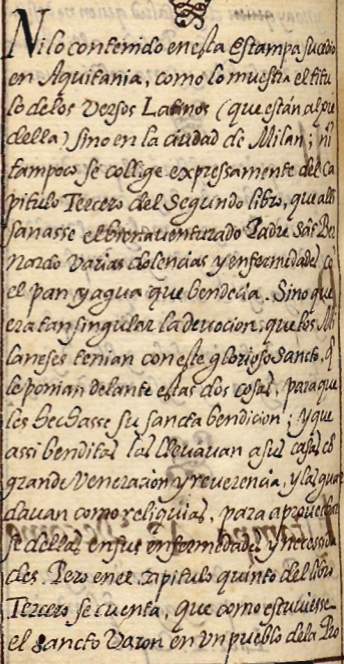 Ni lo contenido en esta Estampa sucedio
en Aquitania, como lo muestra el titu
lo de los versos Latinos (que están al pie
della) sino en la ciudad de Milan; ni
tampoco se collige expressamente del Ca
pitulo Tercero del Segundo libro, que alli
sanasse el bienaventurado Padre San Ber
nardo varias dolencias y enfermedades cõ
el pan y agua que bendecia. Sino que
era tan singular la devocion, que los Mi
laneses tenian con este glorioso Sancto, q̃
le ponian delante estas dos cosas, para que
les hechasse su sancta bendicion; y que
assi benditas las llevavan a sus casas cõ
grande veneracion y reverencia, y las guar
davan como reliquias, para aprovechar
se dellas en sus enfermedades y necessida
des. Pero en el capitulo quinto del libro
Tercero se cuenta, que como estuviesse
el sancto Varon en un pueblo de la Pro